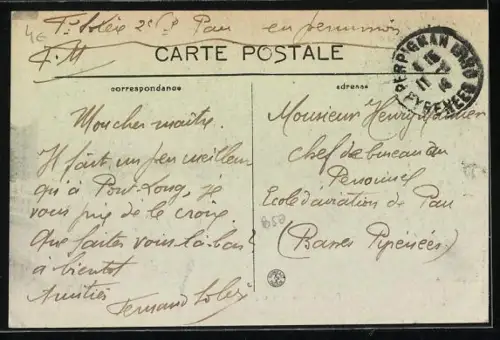 4€
Fd Solère 2e Cie Pau en permission
F.M
CARTE POSTALE
correspondance
adresse
PERPIGNAN
11 16
PYRENEES
Mon cher maître.
Il fait un peu meilleur
qu'à Pont-Long, je
vous prie de le croire
Que faites vous là-bas?
à bientot
Amitiés
Fernand
Monsieur Henry
Chef de bureau du
Personnel
Ecole d'aviation de Pau
(Basses Pyrénées)